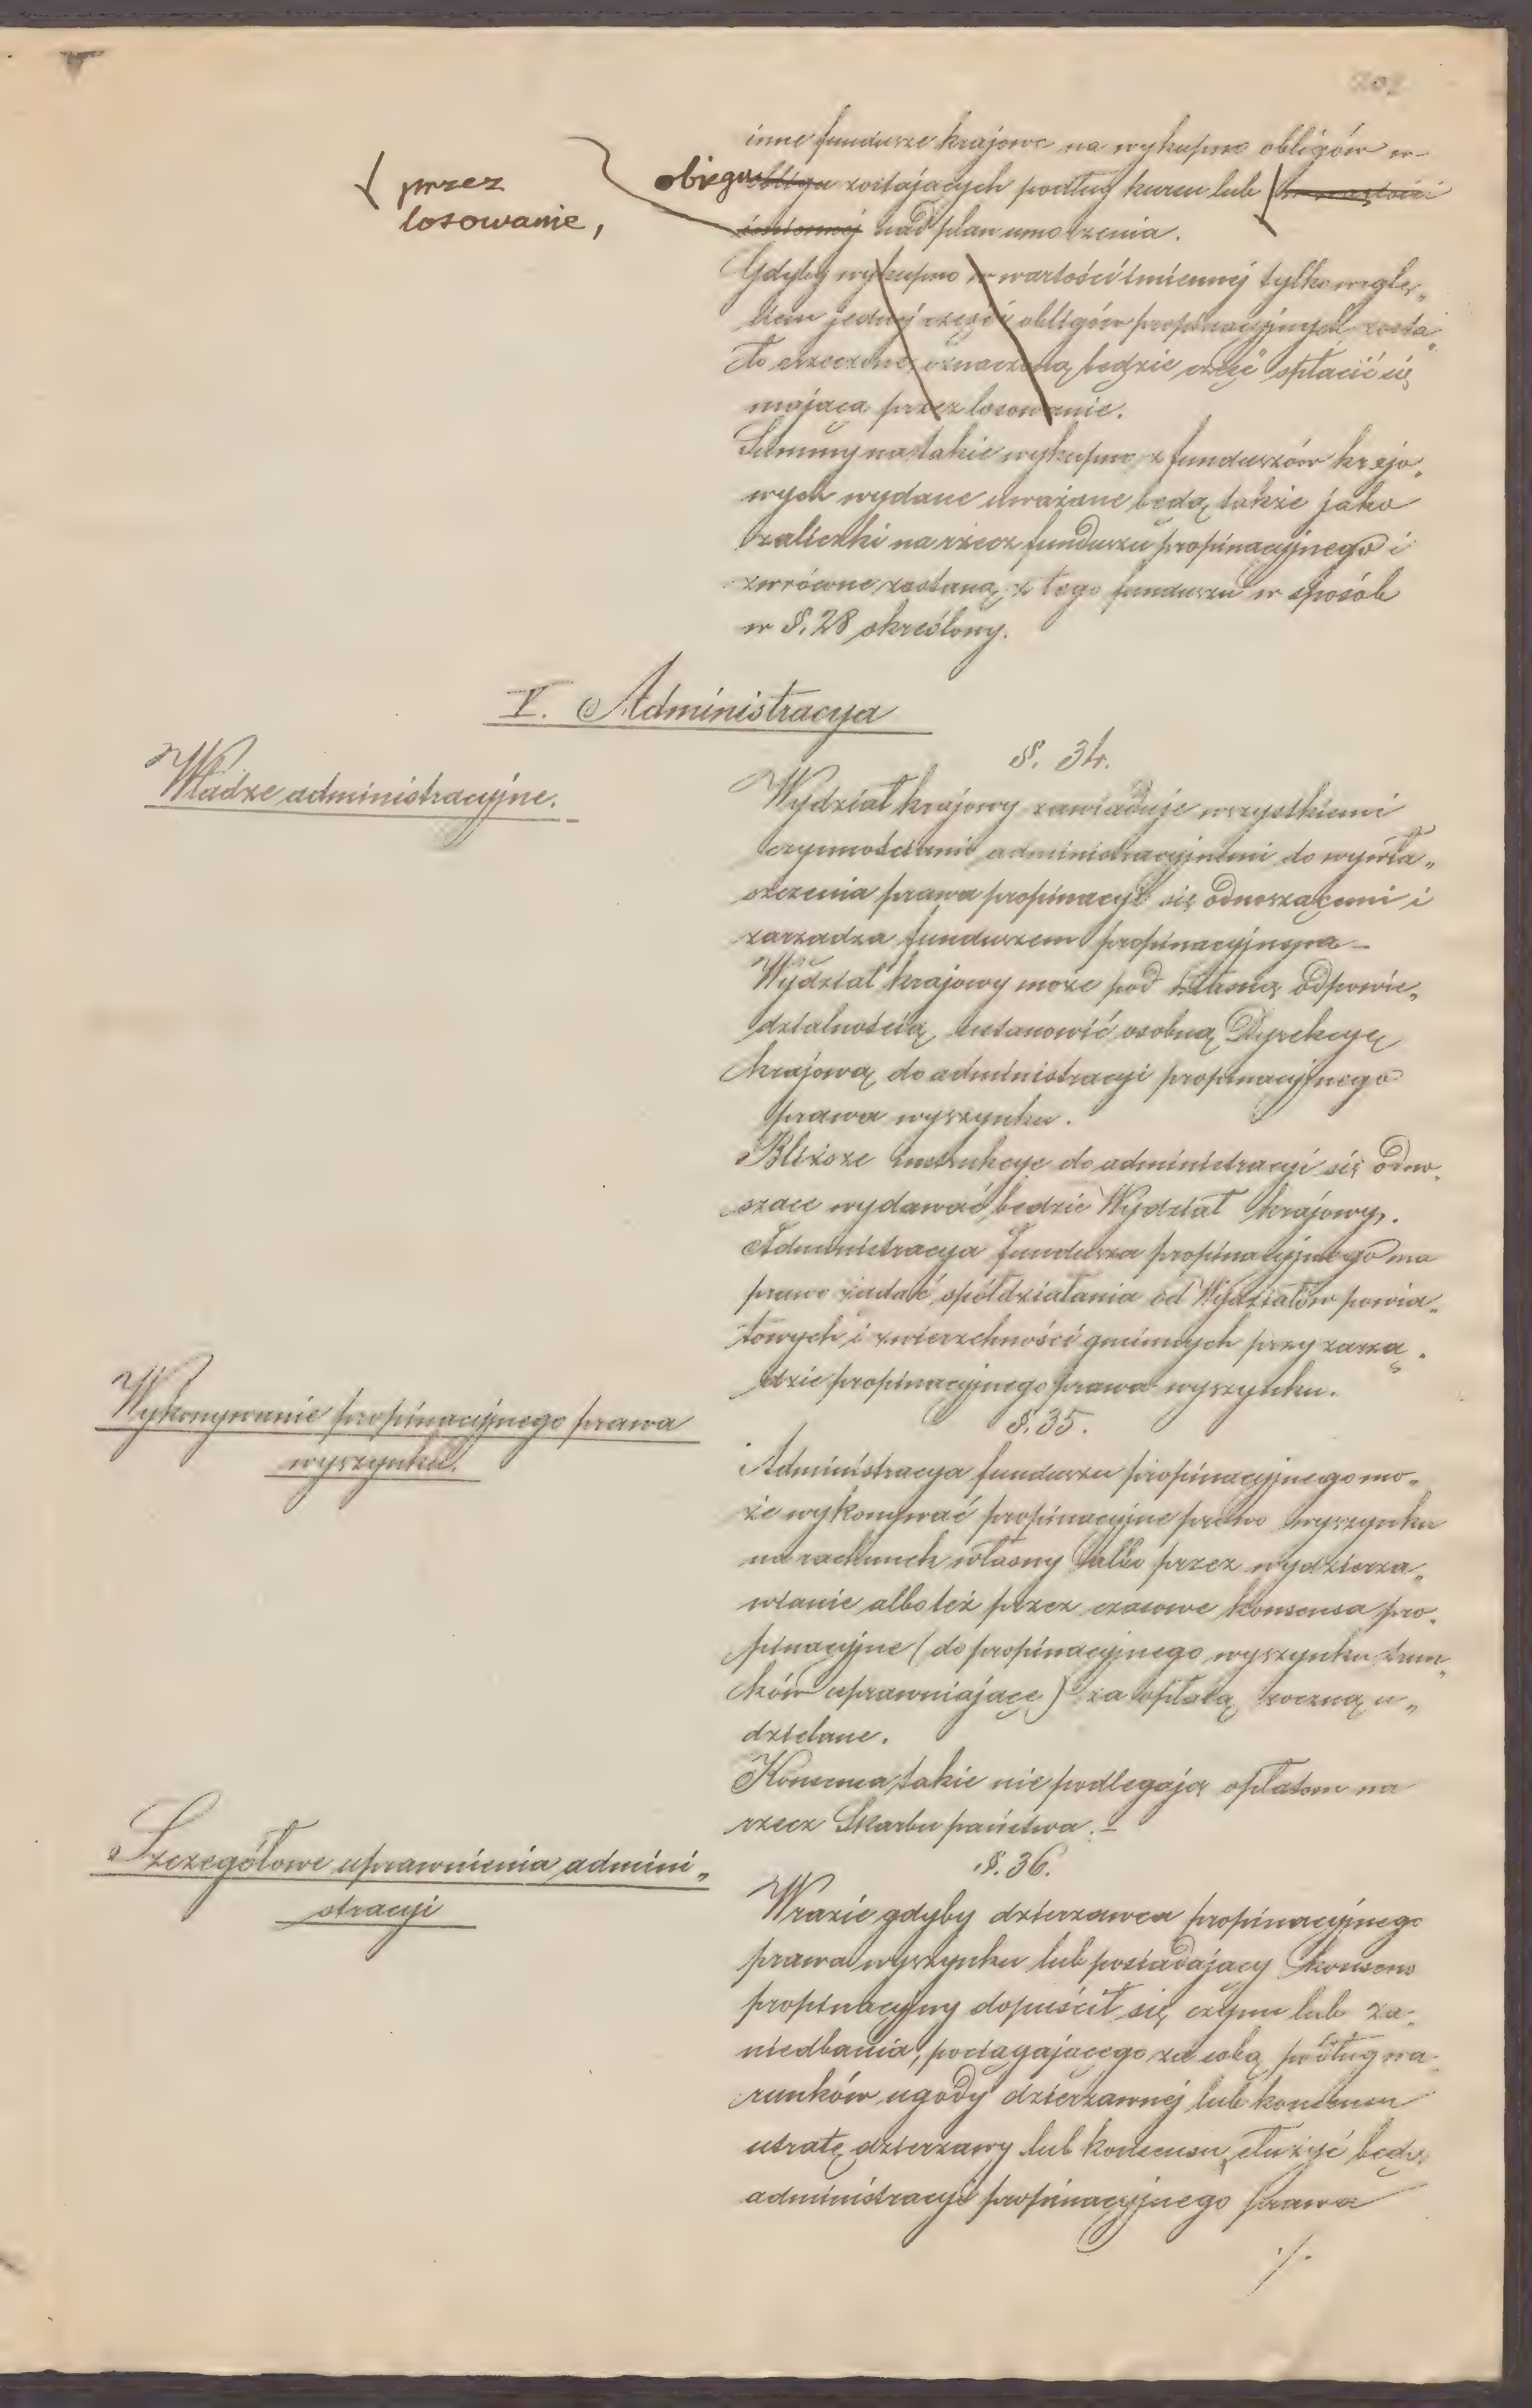 202
inne fundusze krajowe na wykupno obligów w
przez
losowanie,
obiegu obligu zostających podług kursu lub w wartości
imiennej nad plan umorzenia.
Gdyby wykupno w wartości imiennej tylko wzglę„
dem jednej części obligów propinacyjnych zosta„
ło orzeczone, oznaczoną będzie część spłacić się
mająca przez losowanie.
Summy na takie wykupno z funduszów krajo„
wych wydane uważane będą także jako
zaliczki na rzecz funduszu propinacyjnego i
zwrócone zostaną z tego funduszu w sposób
w §. 28 określony.
V. Administracya
§. 34.
Władze administracyjne.
Wydział krajowy zawiaduje wszystkiemi
czynnościami administracyjnemi do wywła„
szczenia prawa propinacyi się odnoszącemi i
zarządza funduszem propinacyjnym –
Wydział krajowy może pod własną odpowie„
dzialnością ustanowić osobną Dyrekcyę
krajową do administracyi propinacyjnego
prawa wyszynku.
Bliższe instrukcye do administracyi się odno„
szące wydawać będzie Wydział krajowy.
Administracya funduszu propinacyjnego ma
prawo żądać spółdziałania od Wydziałów powia„
towych i zwierzchności gminnych przy zarzą„
dzie propinacyjnego prawa wyszynku.
§. 35.
Wykonywanie propinacyjnego prawa
wyszynku.
Administracya funduszu propinacyjnego mo„
że wykonywać propinacyjne prawo wyszynku
na rachunek własny albo przez wydzierża„
wianie albo też przez czasowe konsensa pro„
pinacyjne (do propinacyjnego wyszynku trun„
ków uprawniające) za opłatą roczną u„
dzielane.
Konsensa takie nie podlegają opłatom na
rzecz Skarbu państwa. –
§. 36.
Szczegółowe uprawnienia admini„
stracyi
W razie gdyby dzierzawca propinacyjnego
prawa wyszynku lub posiadający konsens
propinacyjny dopuścił się czynu lub za„
niedbania, pociągającego za sobą podług wa„
runków ugody dzierzawnej lub konsensu
utratę dzierzawy lub konsensu, służyć będą
administracyi propinacyjnego prawa
./.